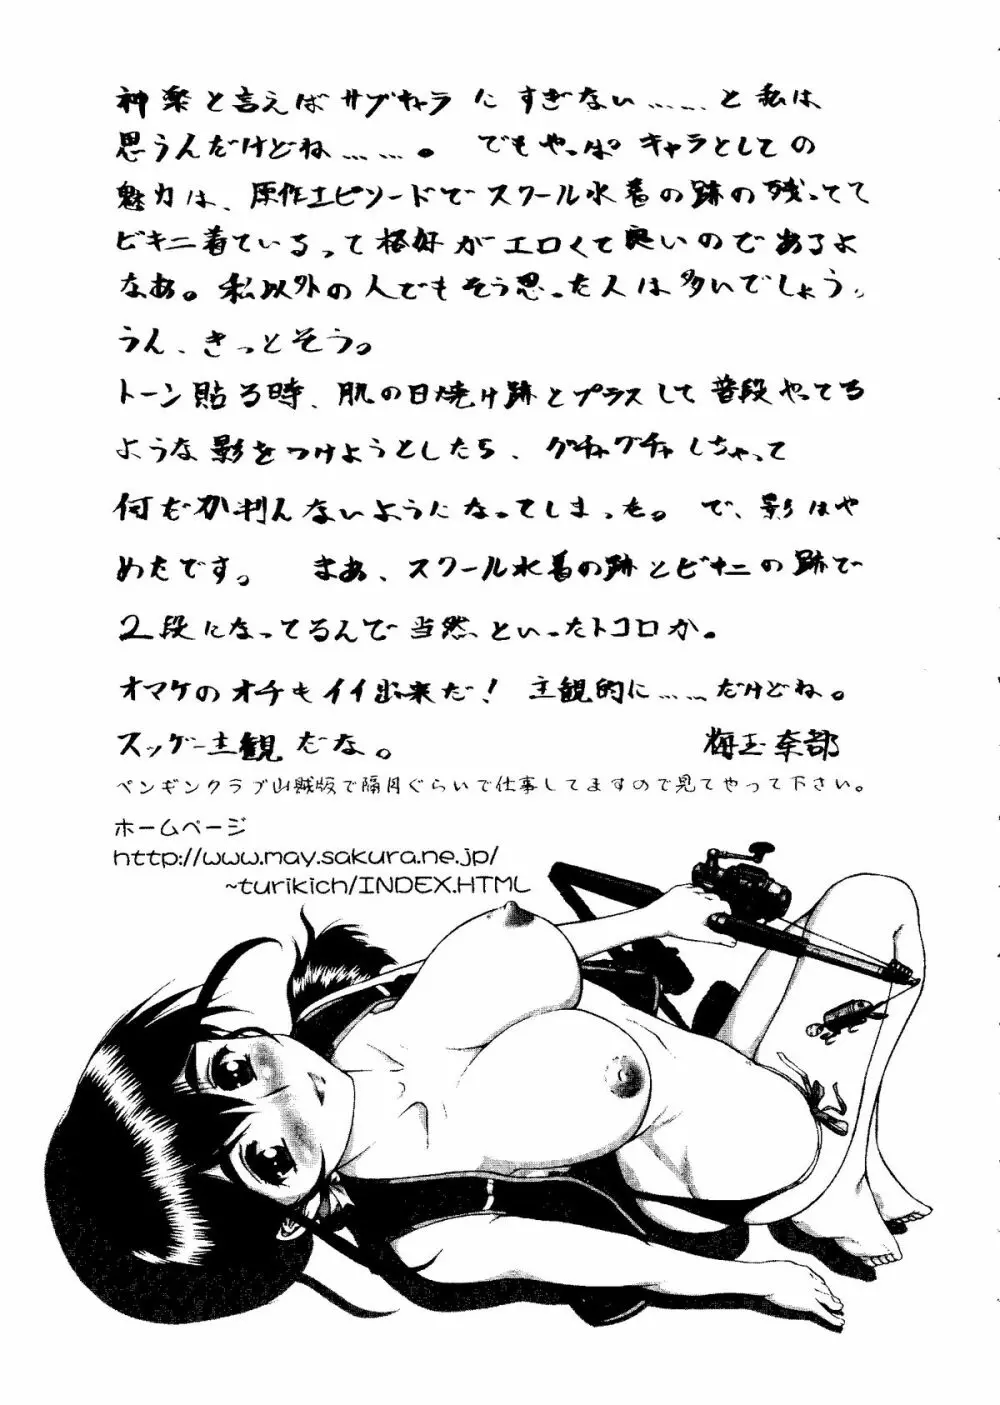 神楽と言えばサブキャラにすぎない……と私は
思うんだけどね……。でもやっぱキャラとしての
魅力は、原作エピソードでスクール水着の跡の残ってて
ビキニ着ているって格好がエロくて良いのであるよ
なあ。私以外の人でもそう思った人は多いでしょう。
うん、きっとそう。
トーン貼る時、肌の日焼け跡とプラスして普段やってる
ような影をつけようとしたら、グチャグチャしちゃって
何だか判んないようになってしまっも。で、影はや
めたです。まあ、スクール水着の跡とビキニの跡で
2段になってるんで当然、といったトコロか。
オマケのオチもイイ出来だ！主観的に……だけどね。
スッゲー主観だな。梅玉奈部
ペンギンクラブ山賊版で隔月ぐらいで仕事してますので見てやって下さい。
ホームページ
http://www.may.sakura.ne.jp/
~turikich/INDEX.HTML